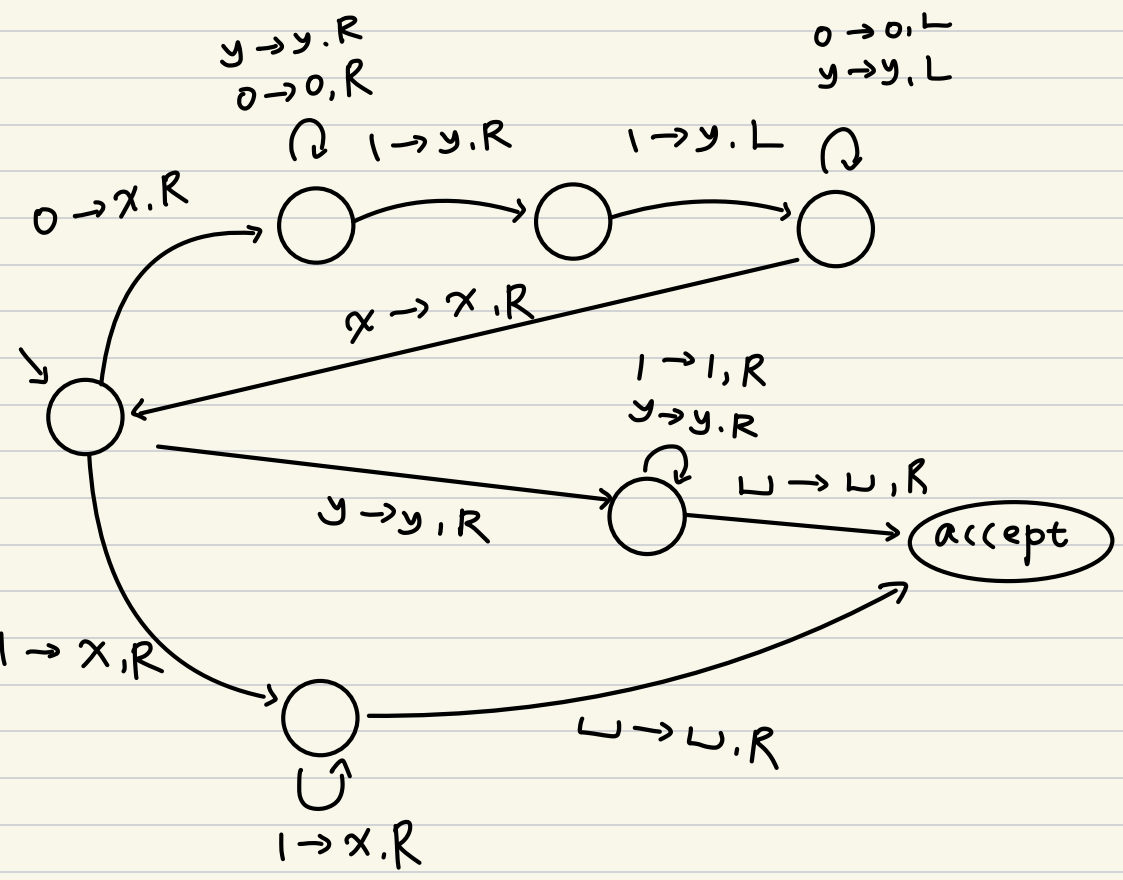 y → y.R
0 → 0,R
0 → 0,L
y → y,L
1 → y.R
1 → y.L
0 → x.R
x → x,R
1 → 1,R
y → y.R
⊔ → ⊔,R
y → y,R
accept
1 → x,R
⊔ → ⊔.R
1 → x.R